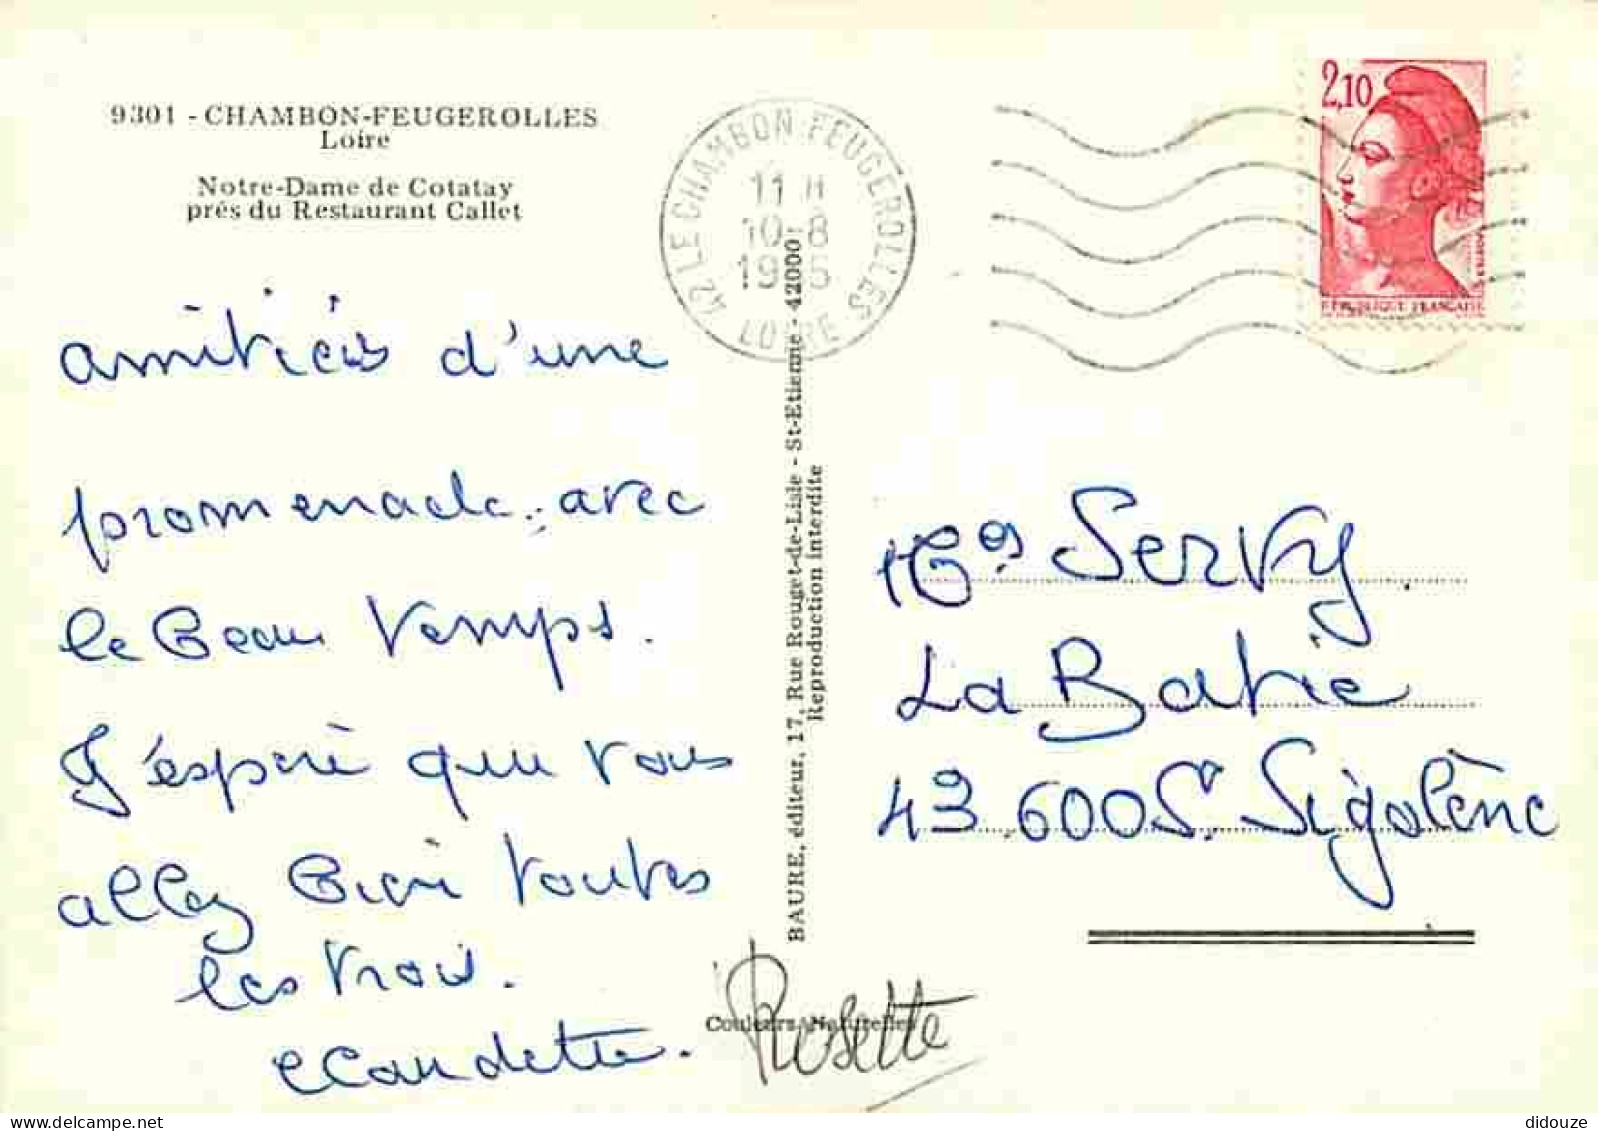 9301 - CHAMBON-FEUGEROLLES
Loire
Notre-Dame de Cotatay
prés du Restaurant Callet
42 LE CHAMBON-FEUGEROLLES
11 H
10-8
LOIRE
2,10
RÉPUBLIQUE FRANÇAISE
amitiés d'une
promenade avec
le beau temps.
J'espère que vous
allez bien toutes
les trois.
Claudette.
Rosette
Couleurs Naturelles
BAURE, éditeur, 17, Rue Rouget-de-Lisle - St-Etienne - 42000
Reproduction interdite
Servy
La Batie
43.600 St. Sigolène
didouze